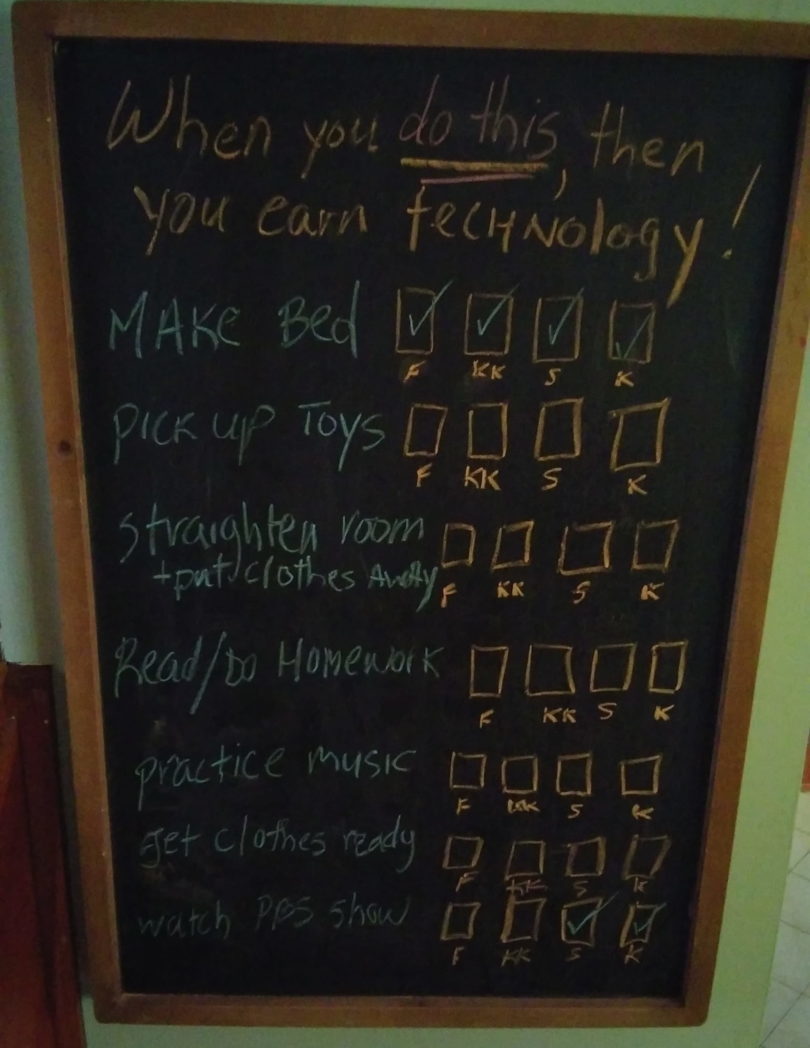 When you do this, then
you earn tecHNology!
MAKe Bed
F KK S K
PICK UP TOYS
F KK S K
straighten room
+put clothes Away
F KK S K
Read/Do Homework
F KK S K
practice music
F KK S K
get clothes ready
F KK S K
watch PBS show
F KK S K